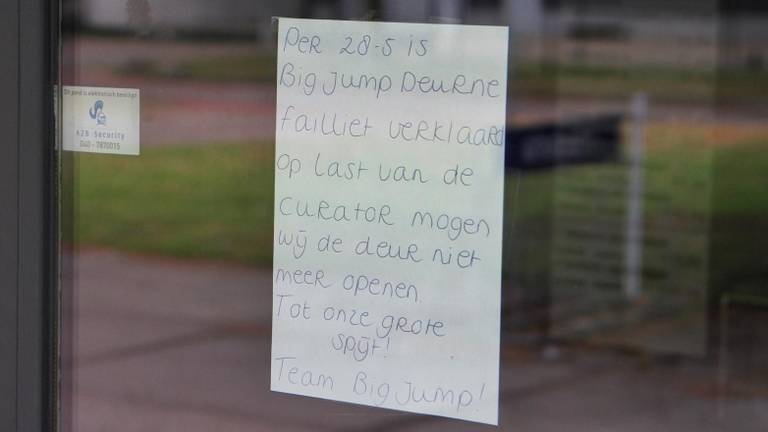 Per 28-5 is
Big Jump Deurne
failliet verklaard
op last van de
curator mogen
wij de deur niet
meer openen.
Tot onze grote
spijt!
Team Big Jump!
Dit pand is elektronisch beveiligd!
A2B Security
040 - 7870015